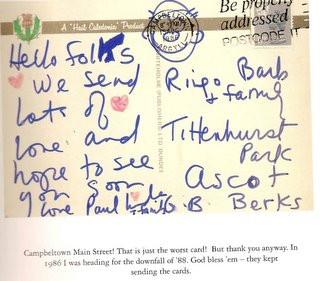 A "Hail Caledonia" Product
CAMPBELTOWN
ARGYLL
Be properly
addressed
POSTCODE IT
Hello folks,
We send
lots of
love and
hope to see
you soon
love Paul Linda & family
Ringo Barb
& family
Tittenhurst
Park
Ascot
Berks
G.B.
WHITEHOLME (PUBLISHERS) LTD DUNDEE
Campbeltown Main Street! That is just the worst card! But thank you anyway. In
1986 I was heading for the downfall of '88. God bless 'em – they kept
sending the cards.